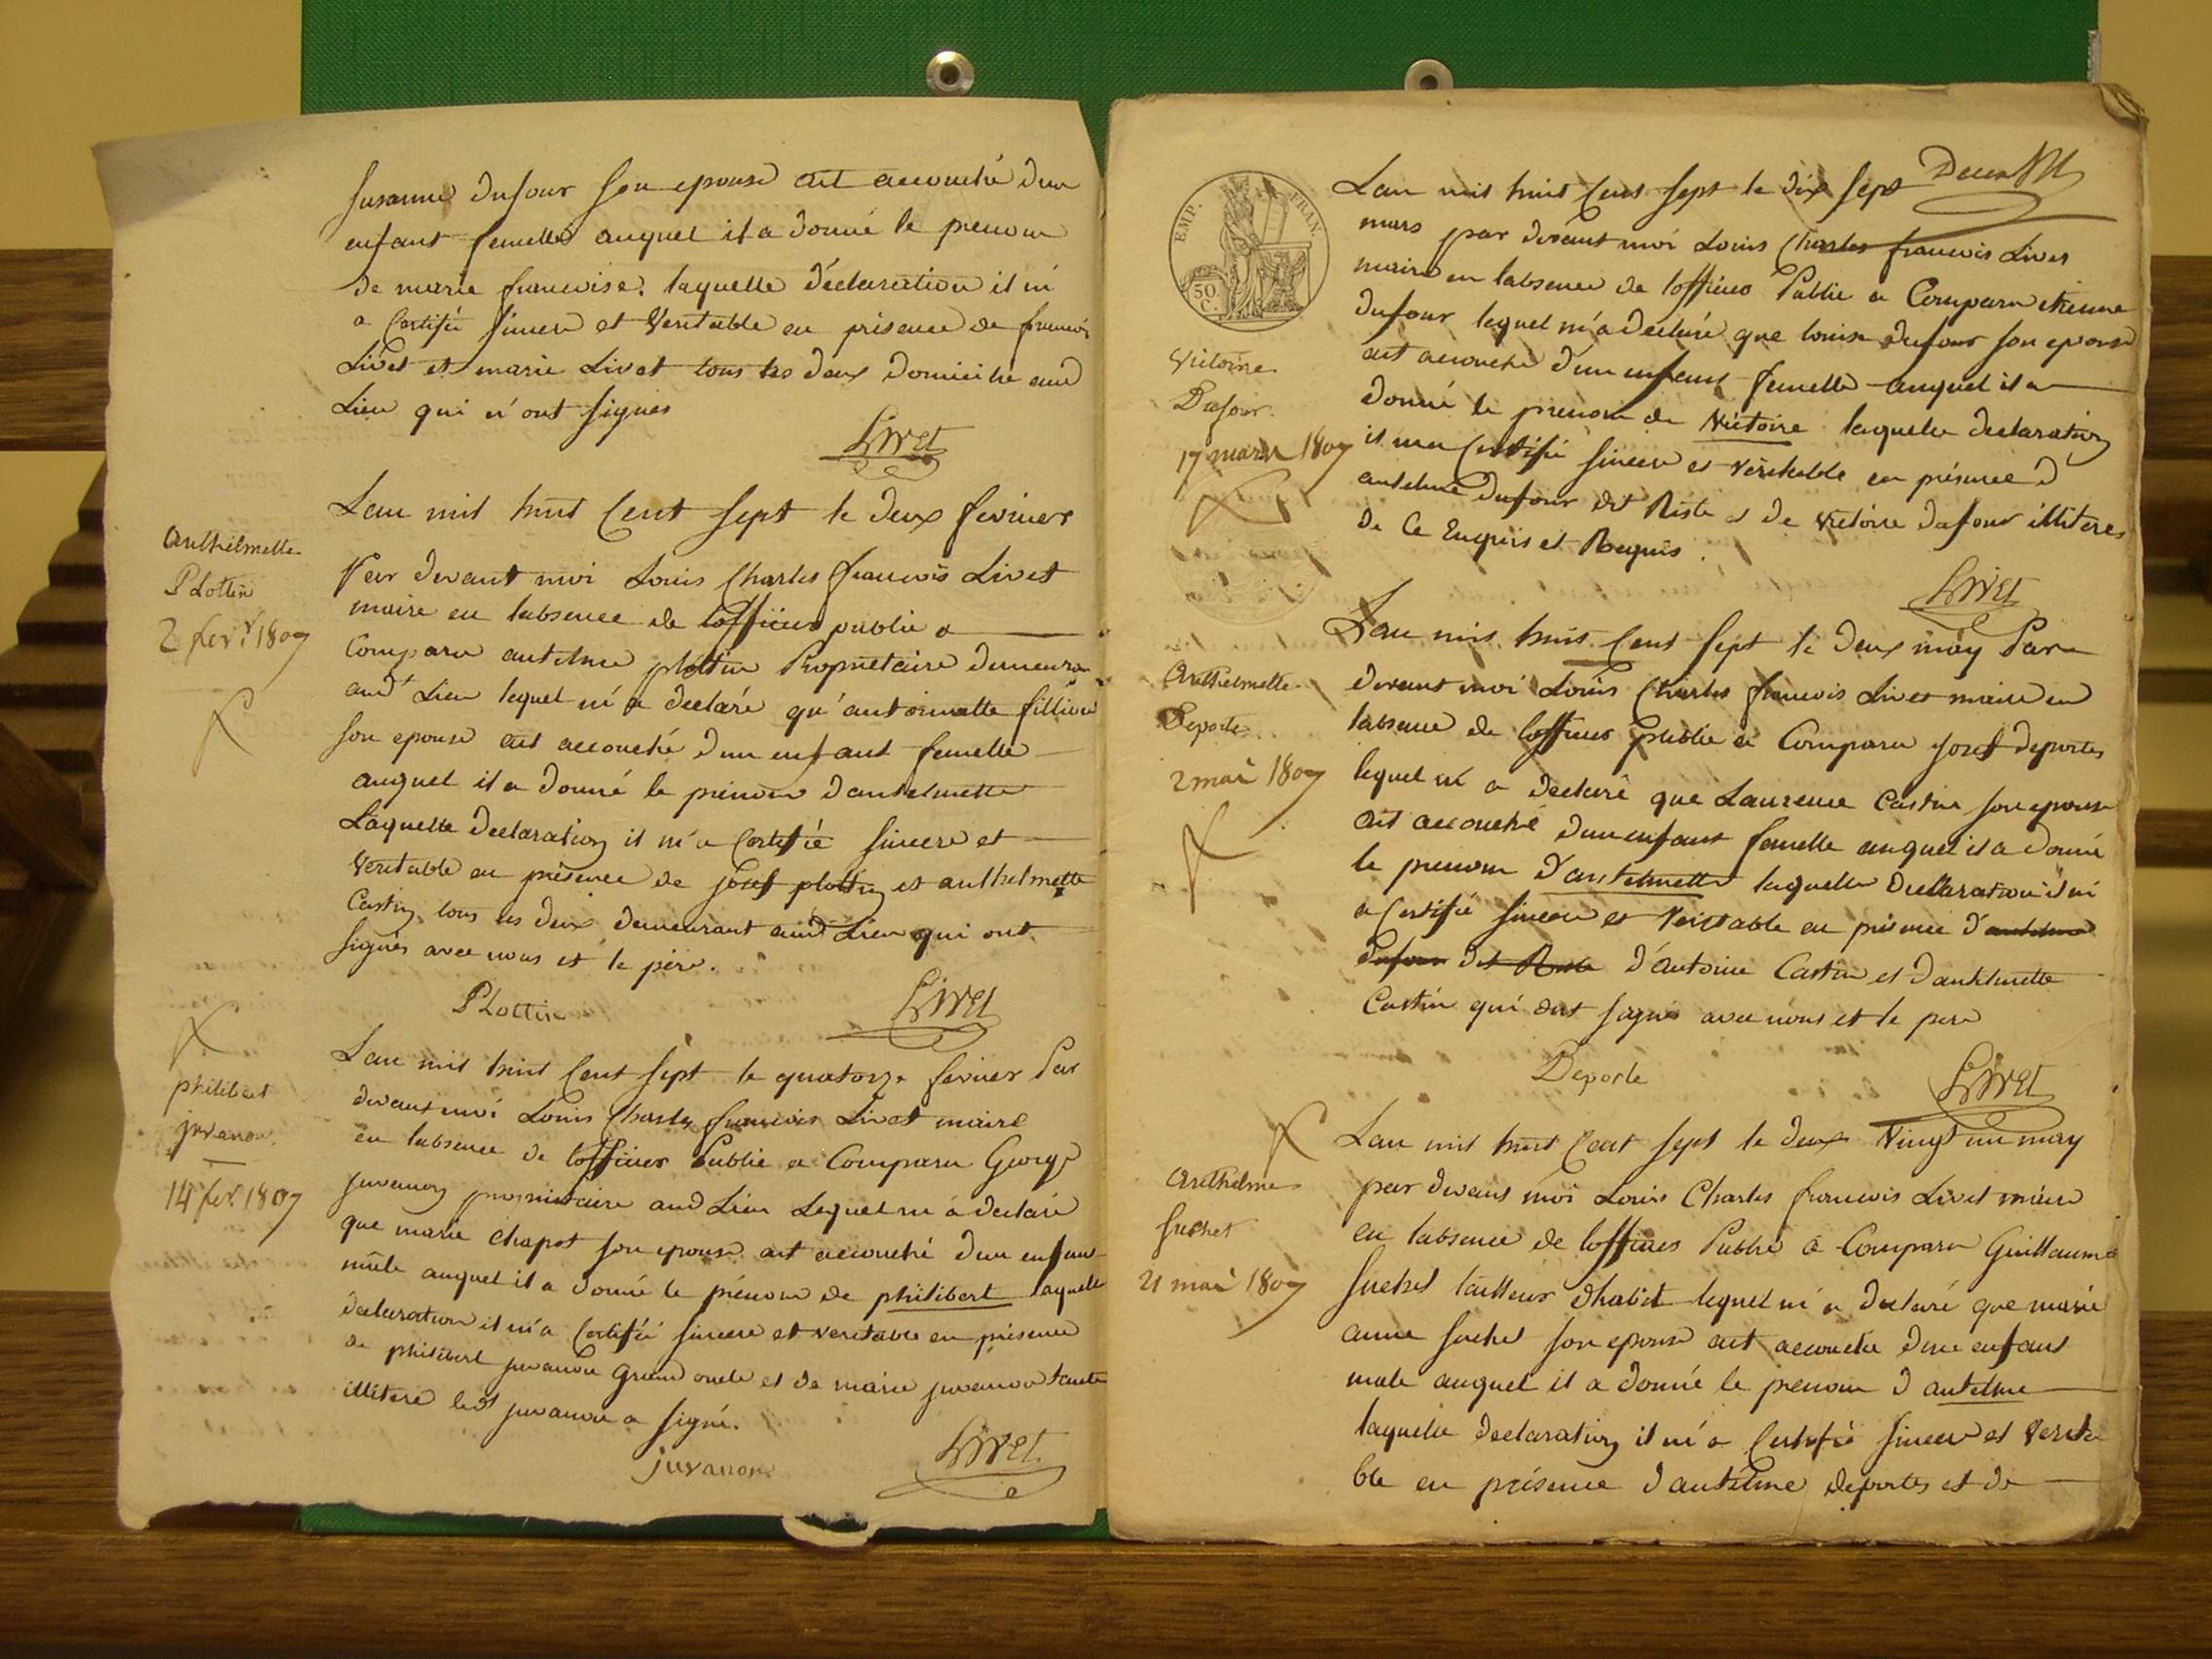 susanne dufour son epouse ait accouché d'un
enfant femelle auquel il a donné le prenom
de marie francoise. laquelle déclaration il m'
a certifié sincere et veritable en présence de francois
Livet et marie Livet tous les deux domicilié aud
Lieu qui n'ont signés
Livet
Lan mil huit cent sept le deux fevrier
Par devant moi Louis Charles francois Livet
maire en labsence de lofficier publie a
comparu antelme plottin Propriétaire demeurant
aud.t Lieu lequel m'a declaré qu'antoinette fillion
son epouse ait accouché d'un enfant femelle
auquel il a donné le prénom d'antelmette
Laquelle declaration il m'a certifié sincere et
veritable en présence de josef plottin et anthelmette
Castin tous les deux demeurant aud Lieu qui ont
signés avec nous et le père.
Plottin
Livet
Anthelmette
Plottin
2 fevr. 1807
Lan mil huit cent sept le quatorze fevrier Par
devant moi Louis Charles francois Livet maire
en labsence de lofficier Publie a Comparu George
juvanon propriétaire aud Lieu Lequel m'a declaré
que marie chapot son epouse ait accouché d'un enfant
mâle auquel il a donné le prénom de philibert laquelle
declaration il m'a certifié sincere et veritable en présence
de philibert juvanon grand oncle et de marie juvanon tante
illitere led juvanon a signé.
juvanon
Livet
philibert
juvanon
14 fer. 1807
EMP. FRAN.
50 C.
Lan mil huit cent sept le dix sept
mars par devant moi Louis Charles francois Livet
maire en labsence de lofficier Publie a Comparu etienne
dufour lequel m'a declaré que louise dufour son epouse
ait accouché d'un enfant femelle auquel il a
donné le prenom de Victoire laquelle declaration
il m'a certifié sincere et véritable en présence d
antelme dufour dit Riste et de victoire dufour illiteres
de ce Enquis et Requis.
Livet
Victoire
Dufour.
17 mars 1807
Lan mil huit cent sept le deux may Par
devant moi Louis Charles francois Livet maire en
labsence de lofficier publie a Comparu josef deportes
lequel m'a declaré que Laurence Castin son epouse
ait accouché d'un enfant femelle auquel il a donné
le prenom d'antelmette laquelle declaration il m'
a certifié sincere et veritable en présence d'antelme
dufour dit Riste d'antoine Castin et d'antelmette
Castin qui ont signés avec nous et le pere
Deporte
Livet
Anthelmette
Deporte
2 mai 1807
Lan mil huit cent sept le deux vingt un may
par devant moi Louis Charles francois Livet maire
en labsence de lofficier Publié a Comparu Guillaume
suchet tailleur dhabit lequel m'a declaré que marie
anne suchet son epouse ait accouché d'un enfant
male auquel il a donné le prenom d'antelme
laquelle declaration il m'a certifié sincere et verita
ble en présence d'antelme deportes et de
Anthelme
Suchet
21 mai 1807